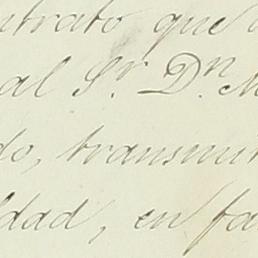 ntrato que
al Sr. Dn. M
do, transmi
ldad, en fa